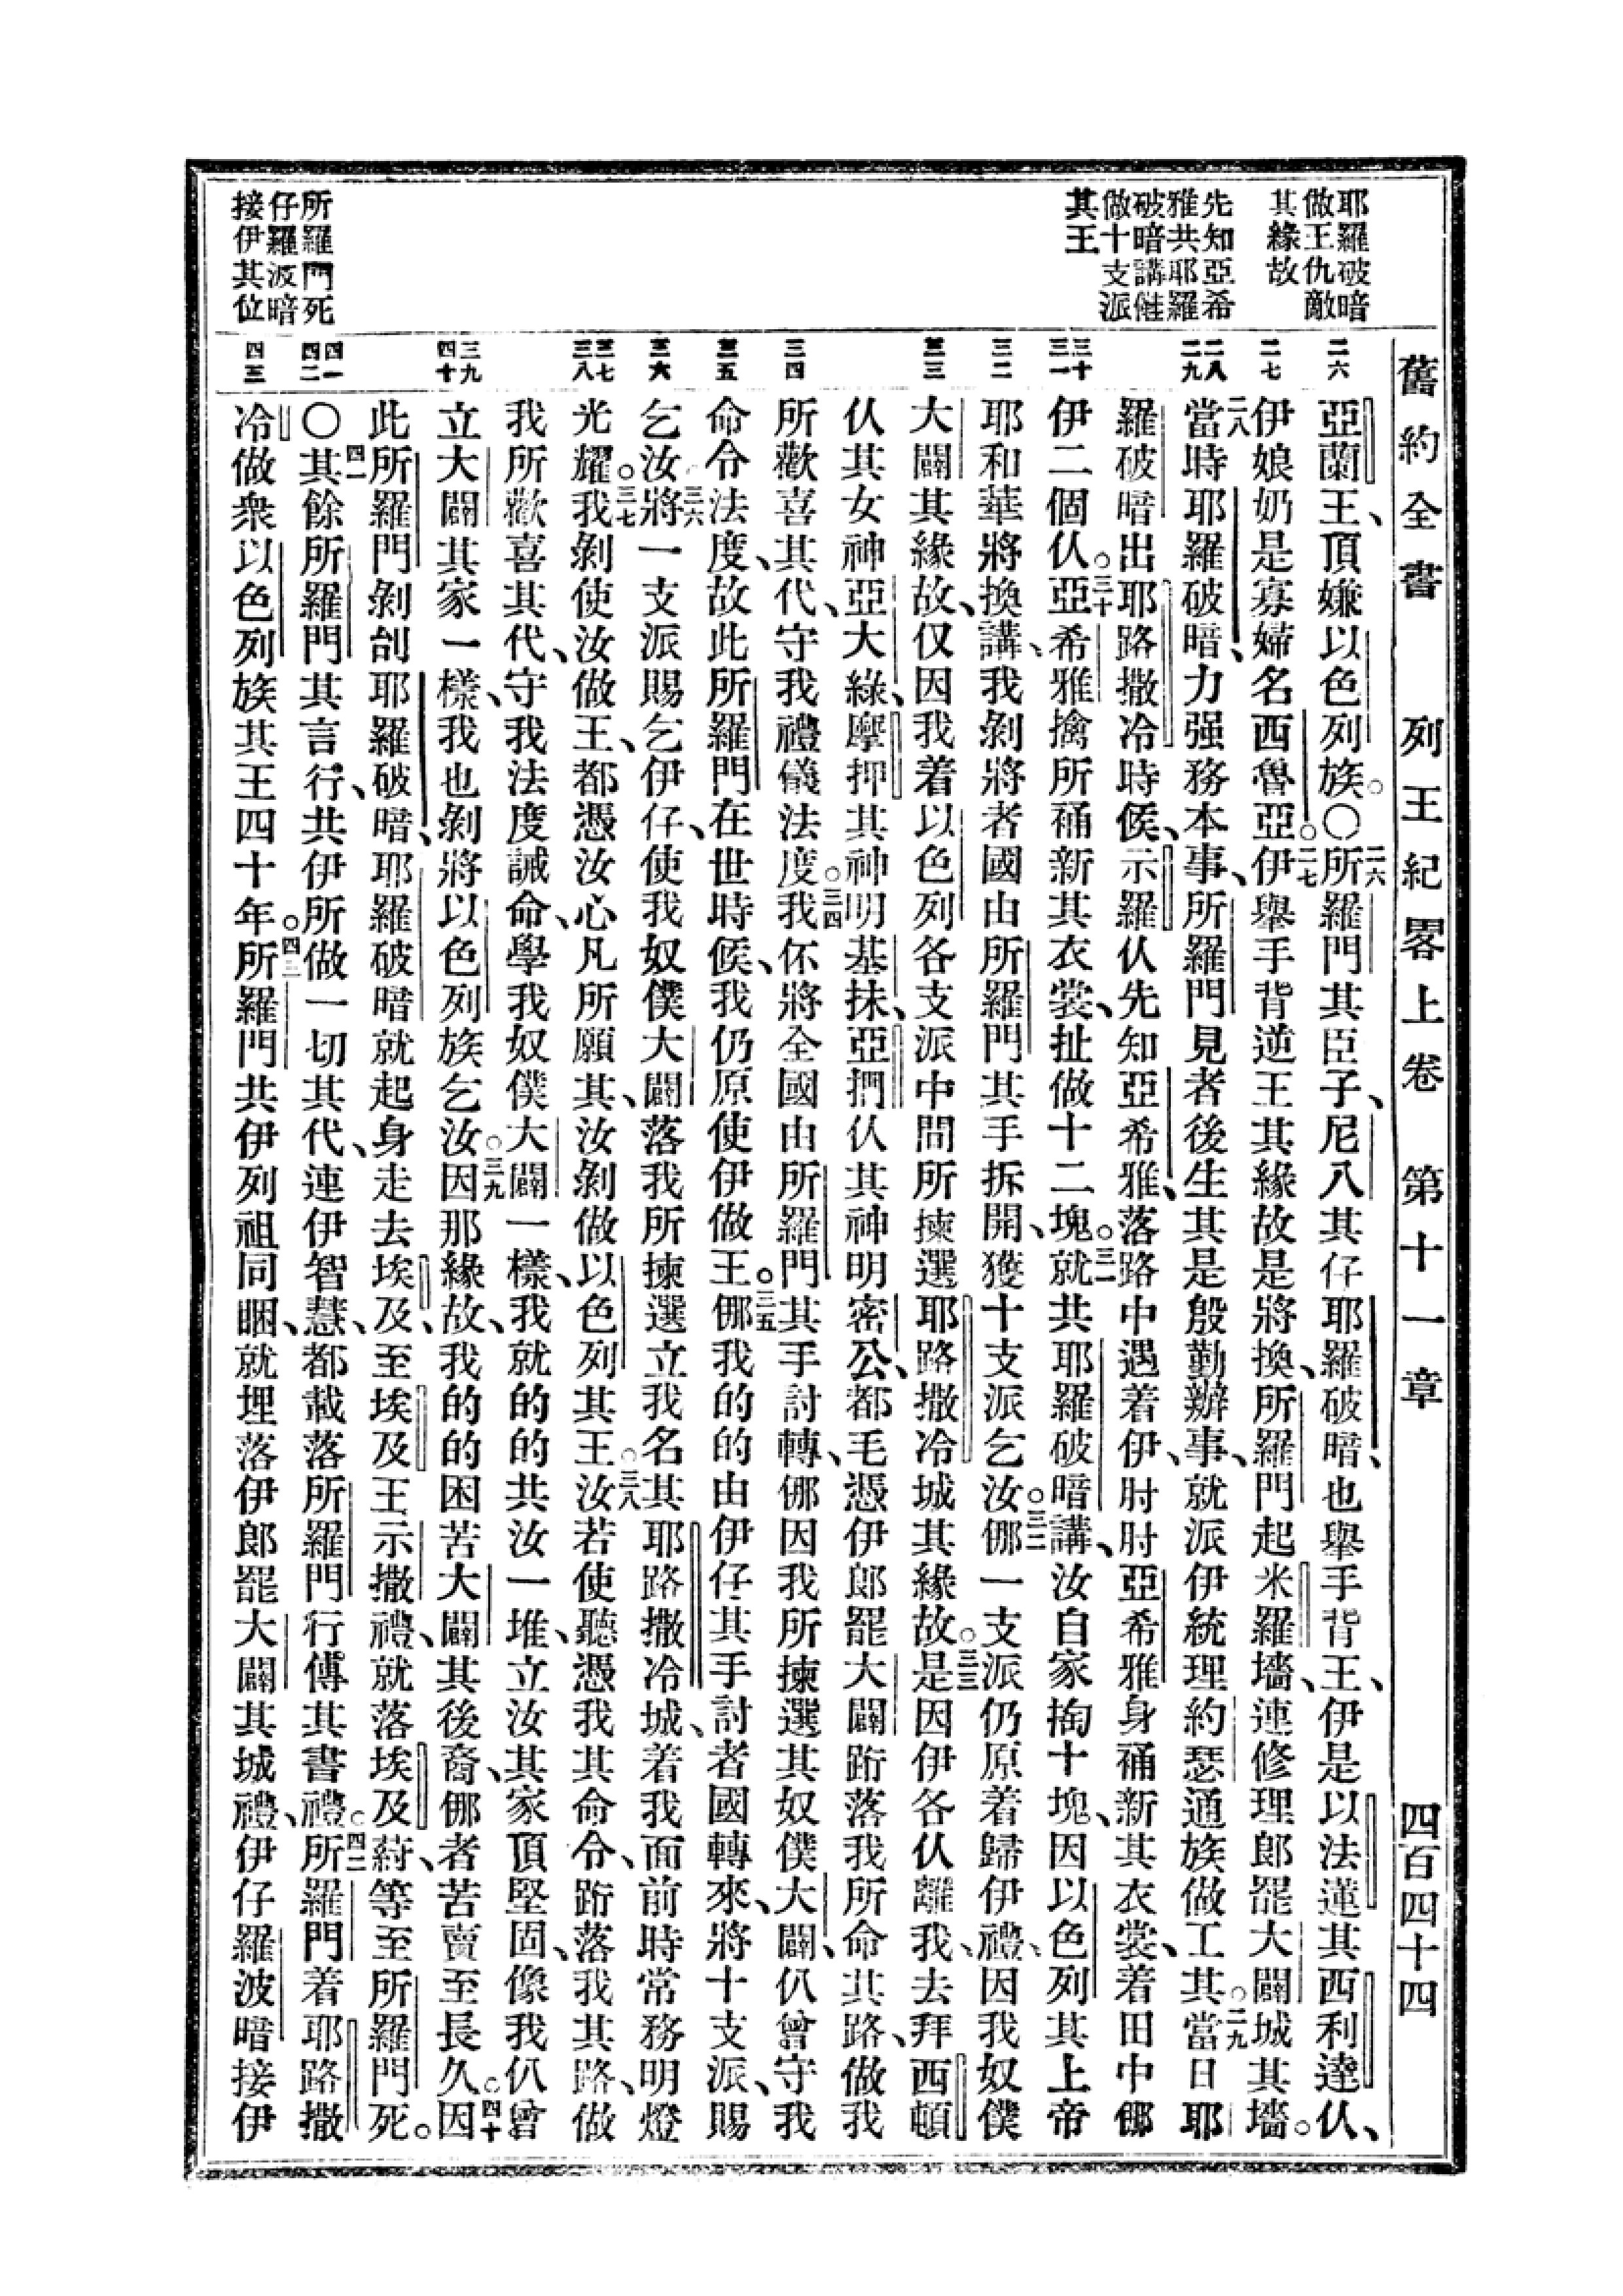 舊約全書　列王紀畧上卷　第十一章　四百四十四
耶羅破暗
做王仇敵
其緣故
先知亞希
雅共耶羅
破暗講僫
做十支派
其王
所羅門死
仔羅波暗
接伊其位
二六
二七
二八
二九
三十
三一
三二
三三
三四
三五
三六
三七
三八
三九
四十
四一
四二
四三
亞蘭王、頂嫌以色列族。〇二六所羅門其臣子、尼八其仔耶羅破暗、也舉手背王、伊是以法蓮其西利達仈、
伊娘奶是寡婦名西魯亞。二七伊舉手背逆王其緣故是將換、所羅門起米羅墻、連修理郎罷大闢城其墻。
二八當時耶羅破暗、力强務本事、所羅門見者後生其是殷勤辦事、就派伊統理約瑟通族做工其。二九當日耶
羅破暗出耶路撒冷時候、示羅仈先知亞希雅、落路中遇着伊、肘肘亞希雅身禙新其衣裳、着田中傰
伊二個仈。三十亞希雅擒所禙新其衣裳、扯做十二塊。三一就共耶羅破暗講、汝自家掏十塊、因以色列其上帝
耶和華將換講、我剝將者國由所羅門其手拆開、獲十支派乞汝。三二傰一支派仍原着歸伊禮、因我奴僕
大闢其緣故、仅因我着以色列各支派中間所揀選耶路撒冷城其緣故。三三是因伊各仈離我、去拜西頓
仈其女神亞大綠、摩押其神明基抹、亞捫仈其神明密公、都毛憑伊郎罷大闢跨落我所命其路、做我
所歡喜其代、守我禮儀法度。三四我伓將全國由所羅門其手討轉、傰因我所揀選其奴僕大闢、仈曾守我
命令法度、故此所羅門在世時候、我仍原使伊做王。三五傰我的的由伊仔其手討者國轉來、將十支派、賜
乞汝、三六將一支派賜乞伊仔、使我奴僕大闢落我所揀選立我名其耶路撒冷城、着我面前時常務明燈
光耀。三七我剝使汝做王、都憑汝心凡所願其、汝剝做以色列其王。三八汝若使聽憑我其命令、跨落我其路、做
我所歡喜其代、守我法度誡命、學我奴僕大闢一樣、我就的的共汝一堆、立汝其家頂堅固、像我仈曾
立大闢其家一樣、我也剝將以色列族乞汝。三九因那緣故、我的的困苦大闢其後裔、傰者苦賣至長久。四十因
此所羅門剝刣耶羅破暗、耶羅破暗就起身走去埃及、至埃及王示撒禮、就落埃及蒔、等至所羅門死。
〇四一其餘所羅門其言行、共伊所做一切其代、連伊智慧、都載落所羅門行傳其書禮。四二所羅門着耶路撒
冷做衆以色列族其王四十年。四三所羅門共伊列祖同睏、就埋落伊郎罷大闢其城禮、伊仔羅波暗接伊